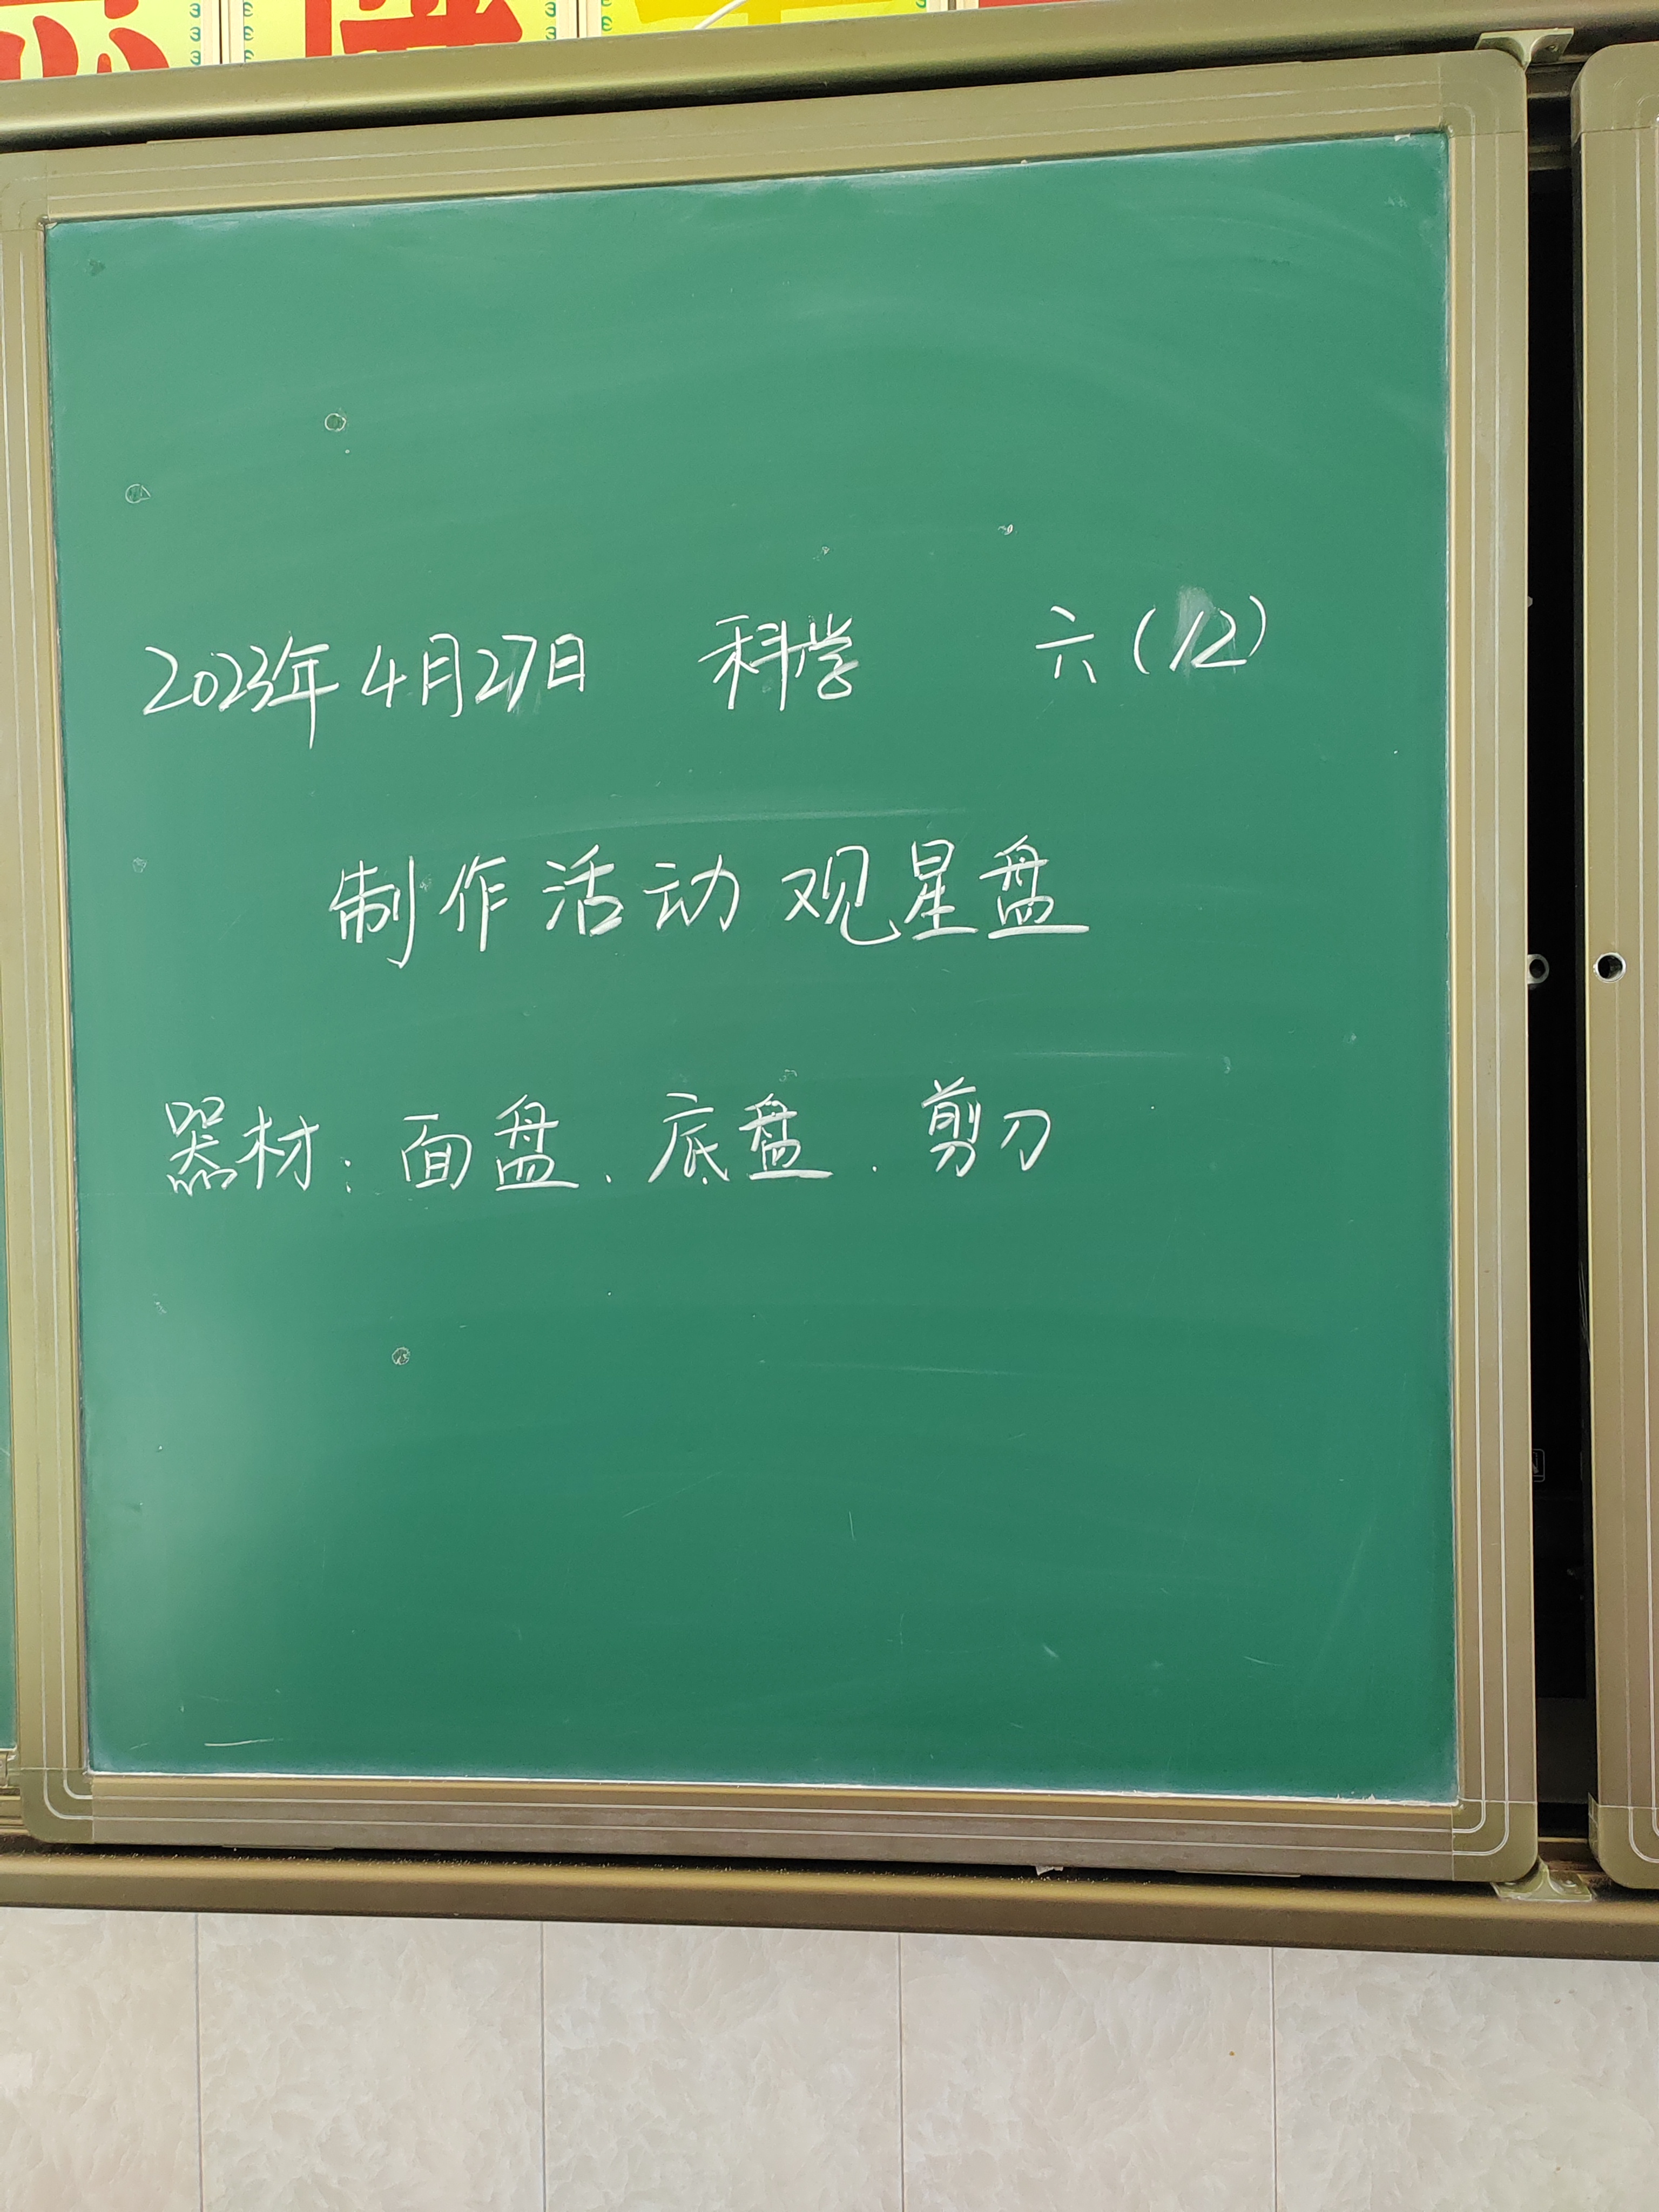 2023年4月27日 科学 六(12)
制作活动 观星盘
器材：面盘、底盘、剪刀